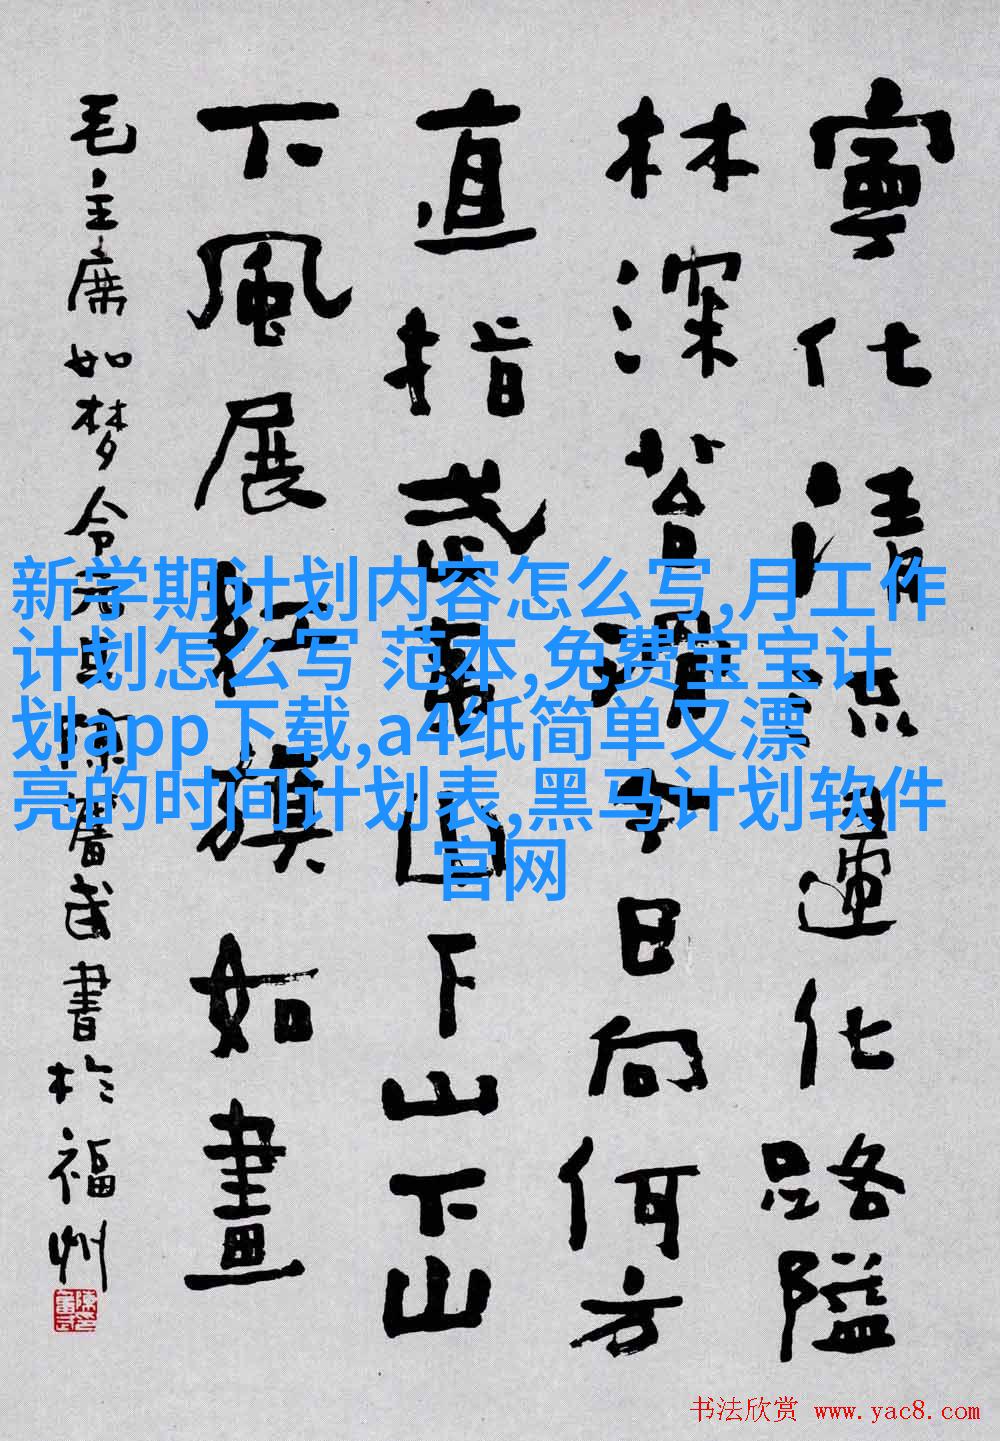 寧化清流化路隘
林深苔滑今日向何方
直指武夷山下山下山
下風展紅旗如畫
毛主席如梦令元旦陳奮武書於福州
新学期计划内容怎么写,月工作
计划怎么写 范本,免费宝宝计
划app下载,a4纸简单又漂
亮的时间计划表,黑马计划软件
官网
书法欣赏 www.yac8.com